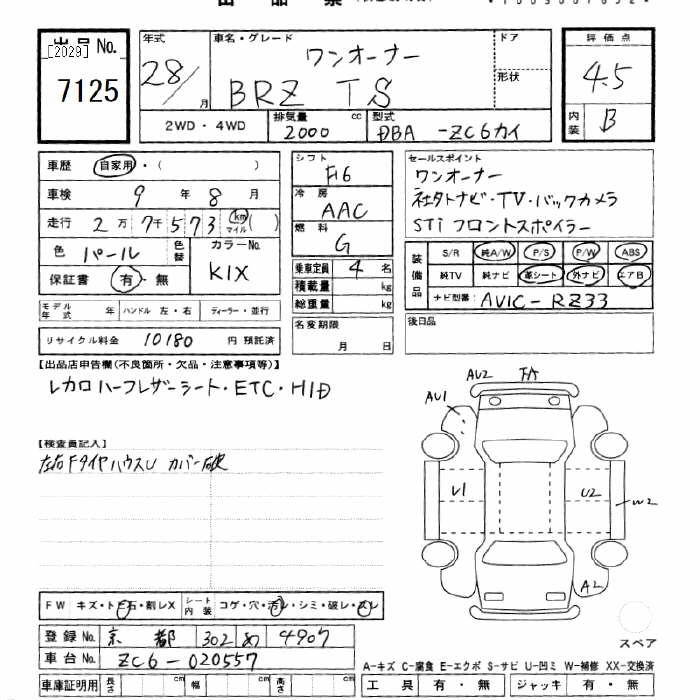 [2029]
出品No.
7125
年式
28/月
車名・グレード
ワンオーナー
BRZ TS
ドア
形状
2WD・4WD
排気量 cc
2000
型式
DBA -ZC6カイ
評価点
4.5
内装
B
車歴 自家用・( )
車検 9年 8月
走行 2万7千573 km マイル ( )
色 パール
色替
カラーNo.
K1X
保証書 有・無
モデル年式 年 ハンドル 左・右 ディーラー・並行
リサイクル料金 10180 円 預託済
シフト
F16
冷房
AAC
燃料
G
乗車定員 4 名
積載量 kg
総重量 kg
名変期限
月 日
セールスポイント
ワンオーナー
社外ナビ・TV・バックカメラ
STi フロントスポイラー
装備品
S/R 純A/W P/S P/W ABS
純TV 純ナビ 革シート 外ナビ エアB
ナビ型番: AVIC-RZ33
後日品
【出品店申告欄(不良箇所・欠品・注意事項等)】
レカロハーフレザーシート・ETC・HID
【検査員記入】
左右FタイヤハウスU カバー破
AU2 FA
AU1
U1 U2 W2
A2
FW キズ・トビ石・割レX
シート内装 コゲ・穴・汚レ・シミ・破レ・スレ
登録No. 京都 302 め 4907
車台No. ZC6-020557
車庫証明用 長さ cm 幅 cm 高さ cm
スペア
A-キズ C-腐食 E-エクボ S-サビ U-凹ミ W-補修 XX-交換済
工具 有・無 ジャッキ 有・無